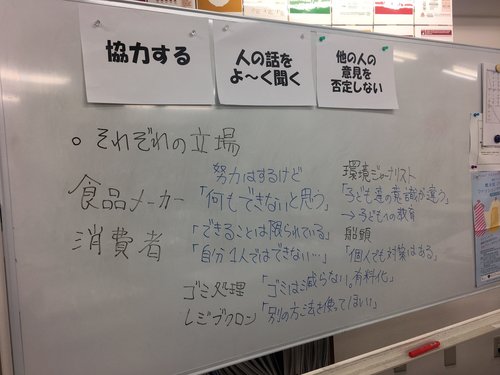 協力する
人の話を
よ〜く聞く
他の人の
意見を
否定しない
。それぞれの立場
努力はするけど
食品メーカー「何もできないと思う」
消費者「できることは限られている」
「自分1人ではできない…」
環境ジャーナリスト
「子ども達の意識が違う」
→子どもへの教育
船頭
「個人でも対策はある」
ゴミ処理「ゴミは減らない。有料化」
レジブクロン「別の方法を使ってほしい」